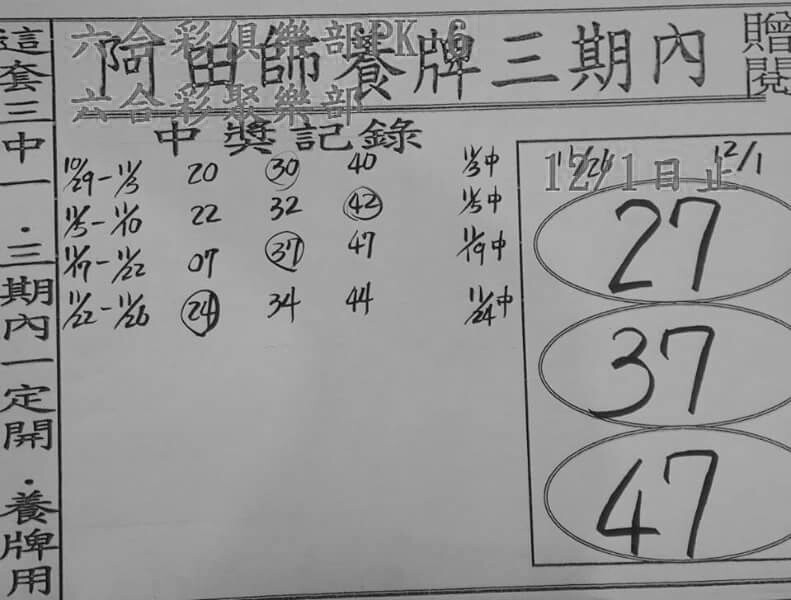 六合彩俱樂部PK 6
阿田師養牌三期內
贈閱
六合彩聚樂部
中獎記錄
這套三中一.三期內一定開.養牌用
10/29-11/3 20 30 40 11/3中
11/5-11/10 22 32 42 11/5中
11/17-11/22 07 37 47 11/19中
11/22-11/26 24 34 44 11/24中
12/1
12/1日止
27
37
47